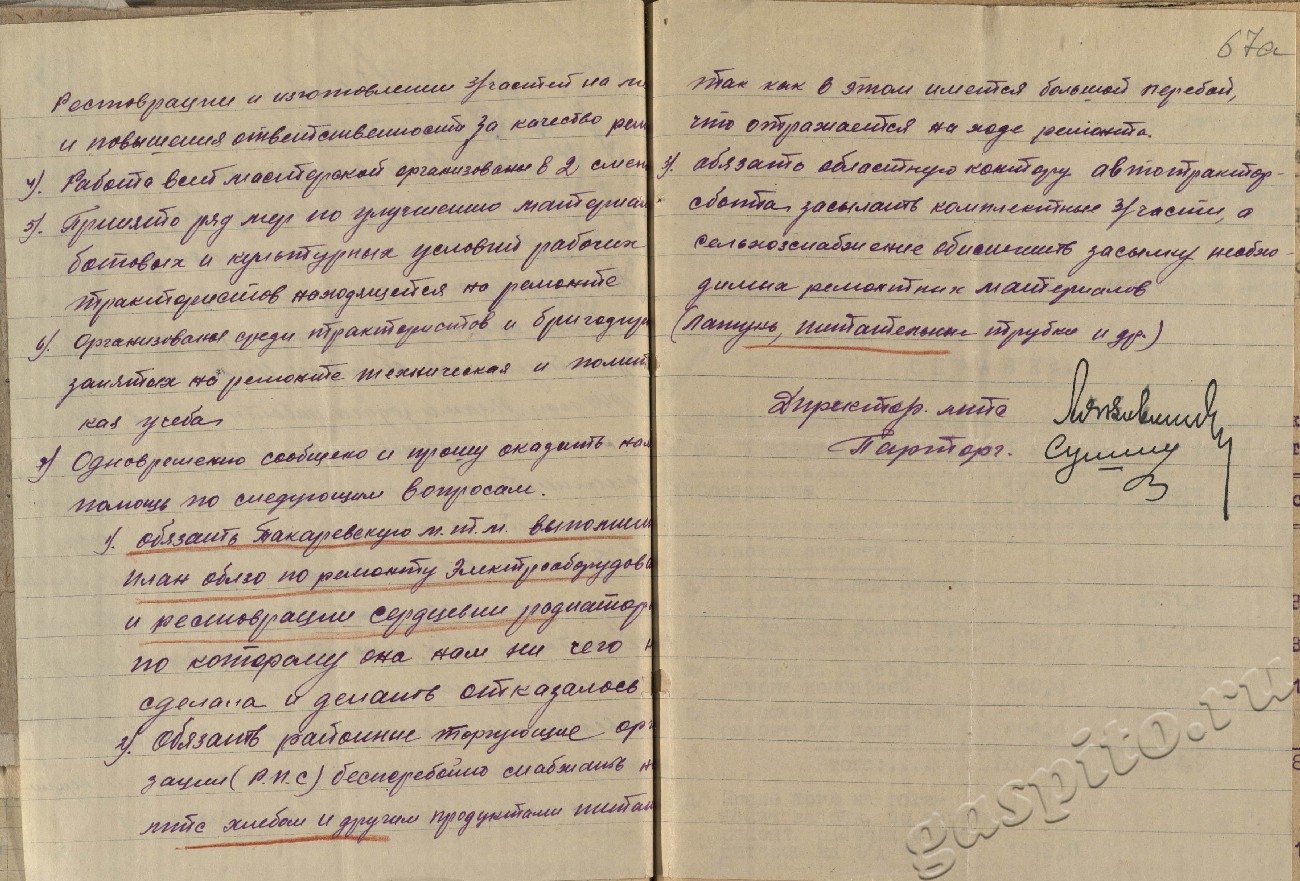 Рестоврации и изготовлении з/частей на ме
и повышения ответственности за качество рем
4). Работа всей мастерской организована в 2 смен
5). Принято ряд мер по улучшению материаль
бытовых и культурных условий рабочих
трактористов находящейся на ремонте
6). Организована среди трактористов и бригадир
занятых на ремонте техническая и полит
кая учеба
7) Одновременно сообщаю и прошу оказать нам
помощь по следующим вопросам.
1). обязать Токаревскую м.т.м. выполнить
план облзо по ремонту Электрооборудова
и рестоврации сердцевин родиатор
по которому она нам ни чего н
сделала и делать отказалось
2). Обязать районные торгующие орг
зации (Р.П.С) бесперебойно снабжать н
мтс хлебом и другим продуктами питан
67а
так как в этом имеется большой перебой,
что отражается на ходе ремонта.
3). обязать областную контору автотрактор-
сбыта засылать комплектные з/части, а
сельхозснабжение обиспечить засылку необхо-
димых ремонтных материалов
(Латунь, питательные трубки и др.)
Директор мтс
Парторг.
gaspito.ru